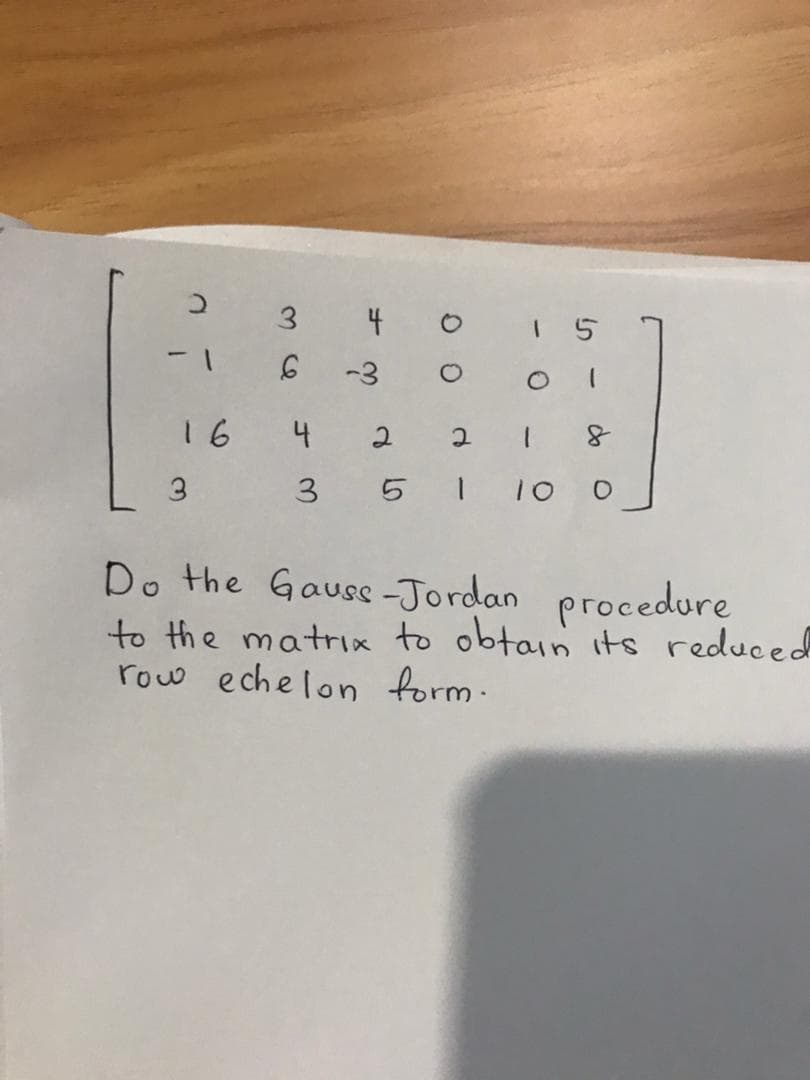 2 3 4 0 1 5
-1 6 -3 0 0 1
16 4 2 2 1 8
3 3 5 1 10 0
Do the Gauss-Jordan procedure
to the matrix to obtain its reduced
row echelon form.